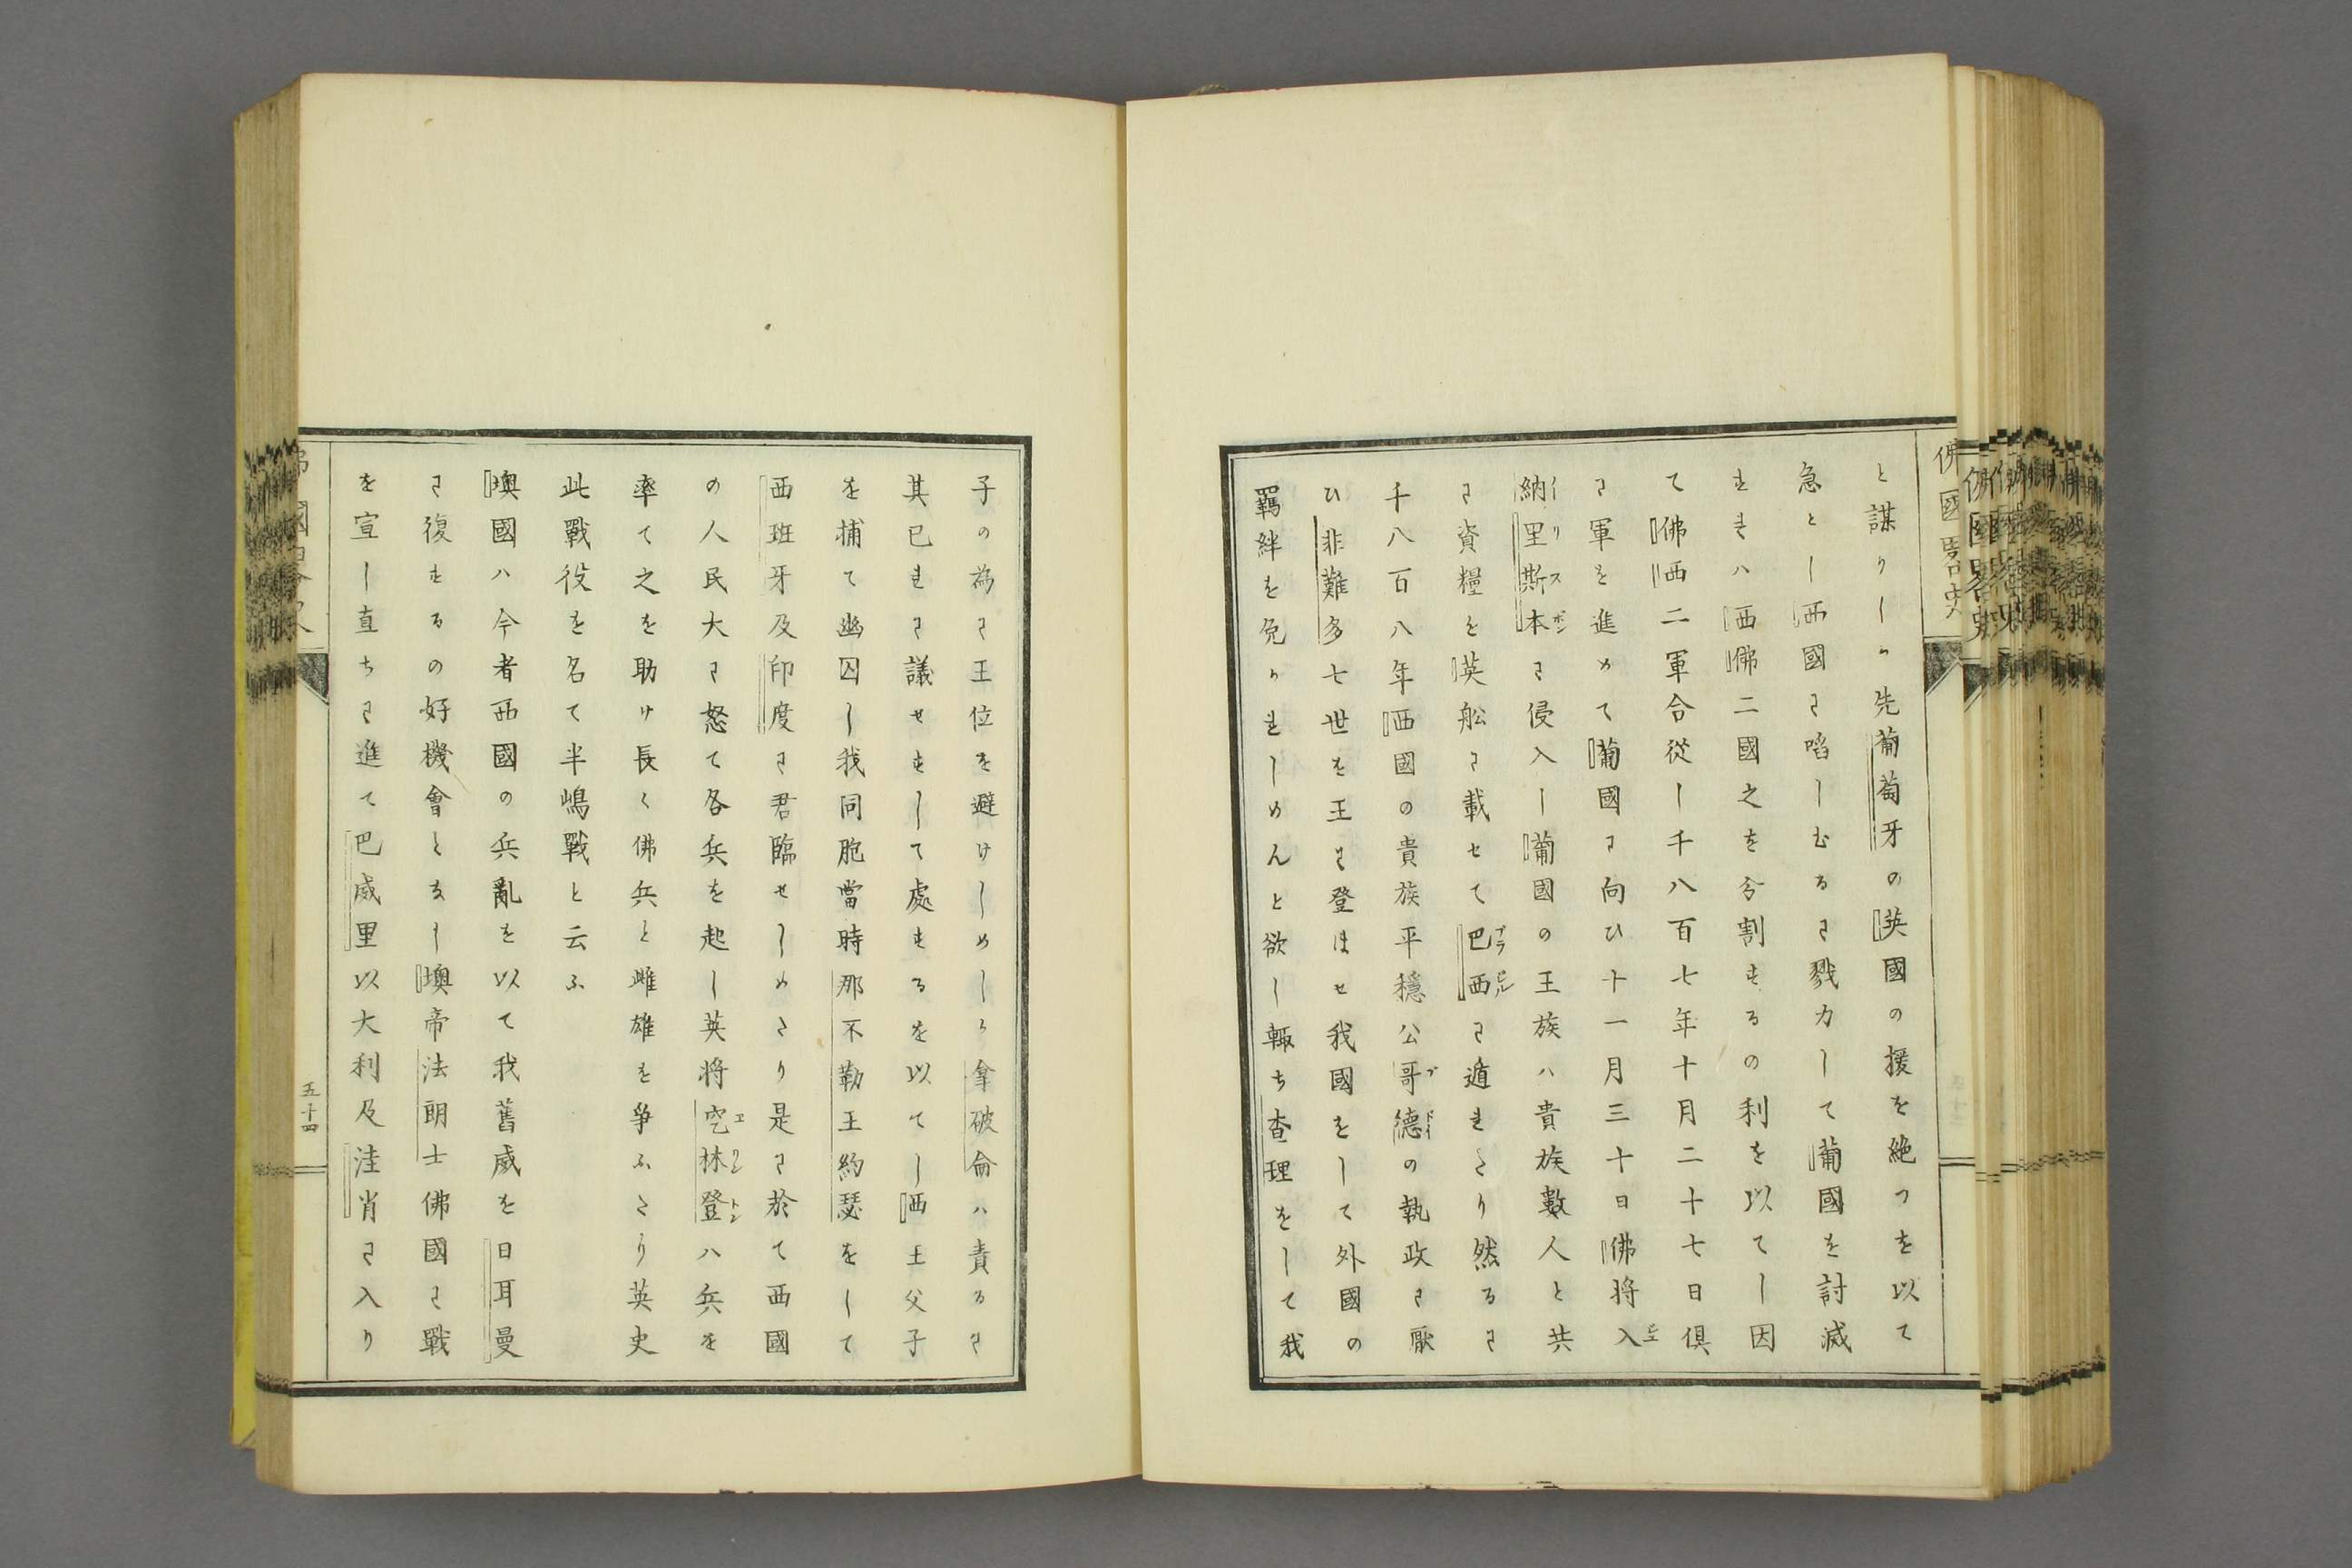 佛國畧史
と謀りしか先葡萄牙の英國の援を絶つを以て
急とし西國に啗しむるに戮力して葡國を討滅
すれハ西佛二國之を分割するの利を以てし因
て佛西二軍合從し千八百七年十月二十七日倶
に軍を進めて葡國に向ひ十一月三十日佛将入
納里斯本に侵入し葡國の王族ハ貴族數人と共
に資糧を英舩に載せて巴西に遁れたり然るに
千八百八年西國の貴族平穩公哥德の執政に厭
ひ非難多七世を王に登ほせ我國をして外國の
羈絆を免かれしめんと欲し輙ち査理をして我
子の為に王位を避けしめしか拿破侖ハ責るに
其已れに議せすして處するを以てし西王父子
を捕て幽囚し我同胞當時那不勒王約瑟をして
西班牙及印度に君臨せしめたり是に於て西國
の人民大に怒て各兵を起し英将空林登ハ兵を
率て之を助け長く佛兵と雌雄を爭ふたり英史
此戰役を名て半嶋戰と云ふ
墺國ハ今者西國の兵亂を以て我舊威を日耳曼
に復するの好機會となし墺帝法朗士佛國に戰
を宣し直ちに進て巴威里以大利及洼肖に入り
五十四